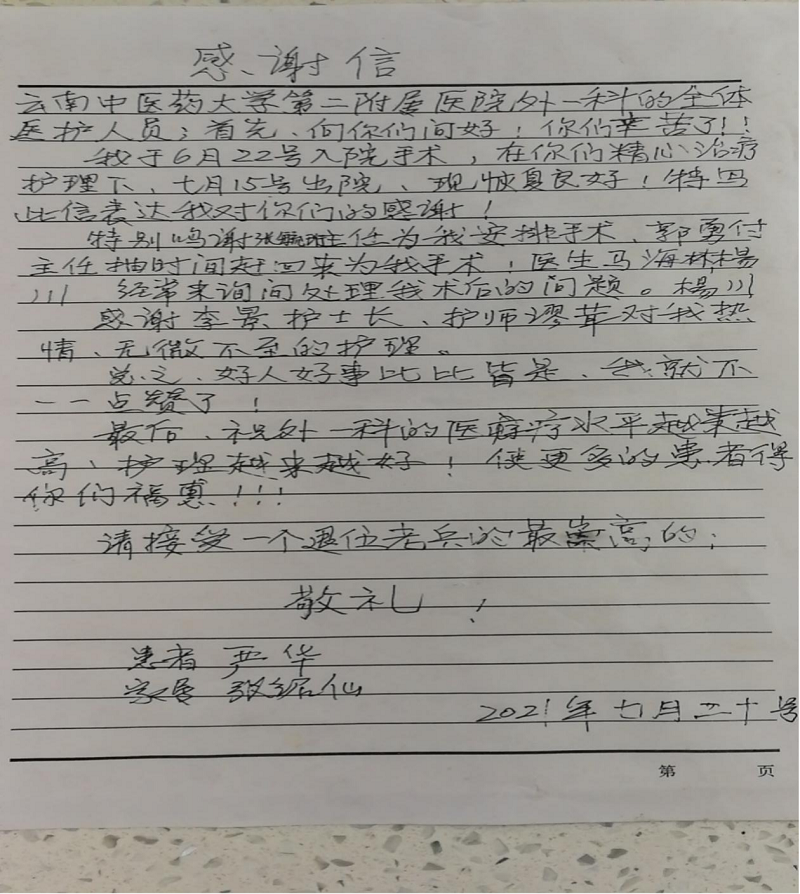 感谢信
云南中医药大学第二附属医院外一科的全体
医护人员；首先、向你们问好！你们辛苦了!!
我于6月22号入院手术，在你们精心治疗
护理下、七月15号出院、现恢复良好！特写
此信表达我对你们的感谢！
特别鸣谢张毓班主任为我安排手术、郭勇付
主任抽时间赶回来为我手术！医生马海林楊
川 经常来询问处理我术后的问题。楊川
感谢李景护士长、护师谬茸对我热
情、无微不至的护理。
总之、好人好事比比皆是、我就不
一一点赞了！
最后、祝外一科的医疗水平越来越
高、护理越来越好！使更多的患者得
你们福惠!!!
请接受一个退伍老兵的最崇高的；
敬礼！
患者 严华
家属 张 仙
2021年七月二十号
第 页